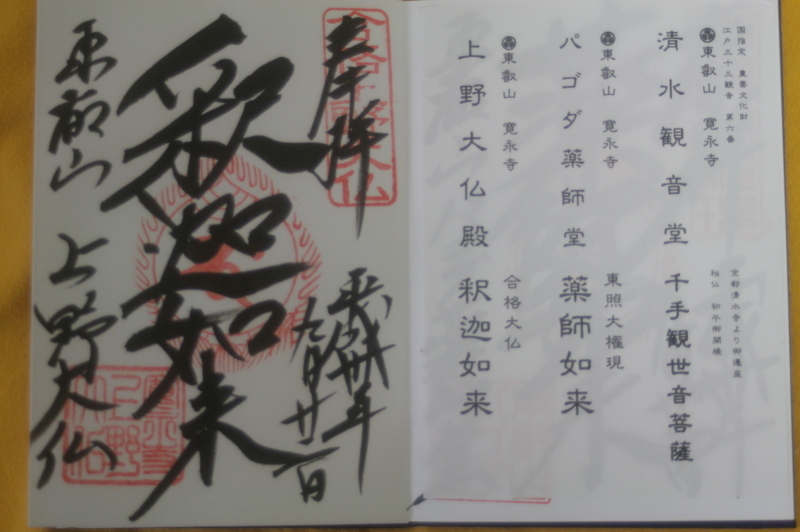 国指定 重要文化財
江戸三十三観音 第六番
東叡山 寛永寺
清水観音堂 千手観世音菩薩
京都清水寺より御遷座
秘仏 初午御開帳
東叡山 寛永寺
パゴダ薬師堂 薬師如来
東照大権現
東叡山 寛永寺
上野大仏殿 釈迦如来
合格大仏
奉拝
平成卅年
九月廿二日
釈迦如来
東叡山 上野大仏